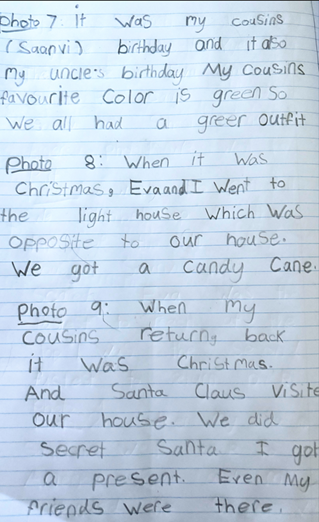 Photo 7: It was my cousins
(Saanvi) birthday and it also
my uncle's birthday My cousins
favourite color is green so
We all had a greer outfit
Photo 8: When it was
Christmas, Eva and I went to
the light house which was
opposite to our house.
We got a candy cane.
Photo 9: When my
cousins return, back
it was Christmas.
And Santa Claus visite
our house. We did
secret Santa I got
a present. Even my
friends were there.